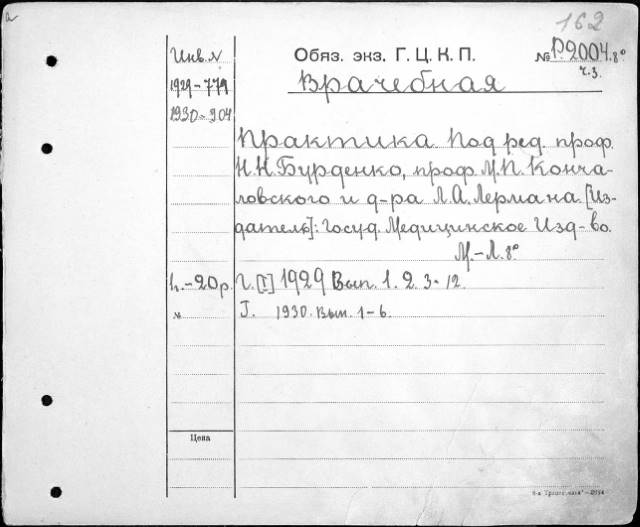 а
162
Инв. №
Обяз. экз. Г. Ц. К. П.
№ Р2004.8°
ч.3.
1929-779
Врачебная
1930-904
Практика. Под ред. проф.
Н.Н. Бурденко, проф. М.П. Конча-
ловского и д-ра Л.А. Лермана. [Из-
датель]: Госуд. Медицинское Изд-во.
М.-Л. 8°
ц.-20р.
Г. [I] 1929 Вып. 1. 2. 3-12.
№
Г. 1930. Вып. 1-6.
Цена